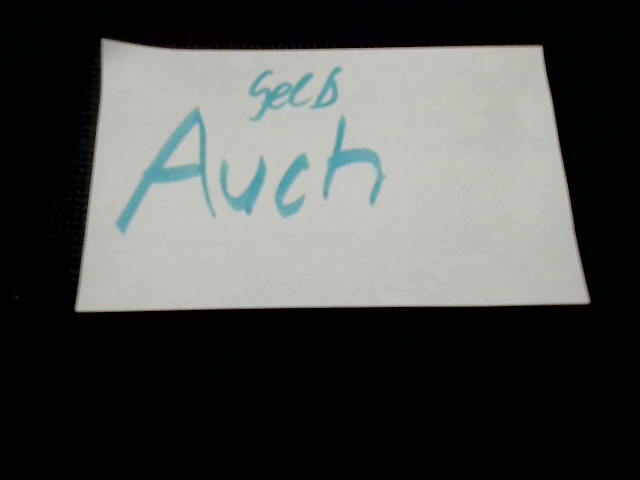 Gelb
Auch